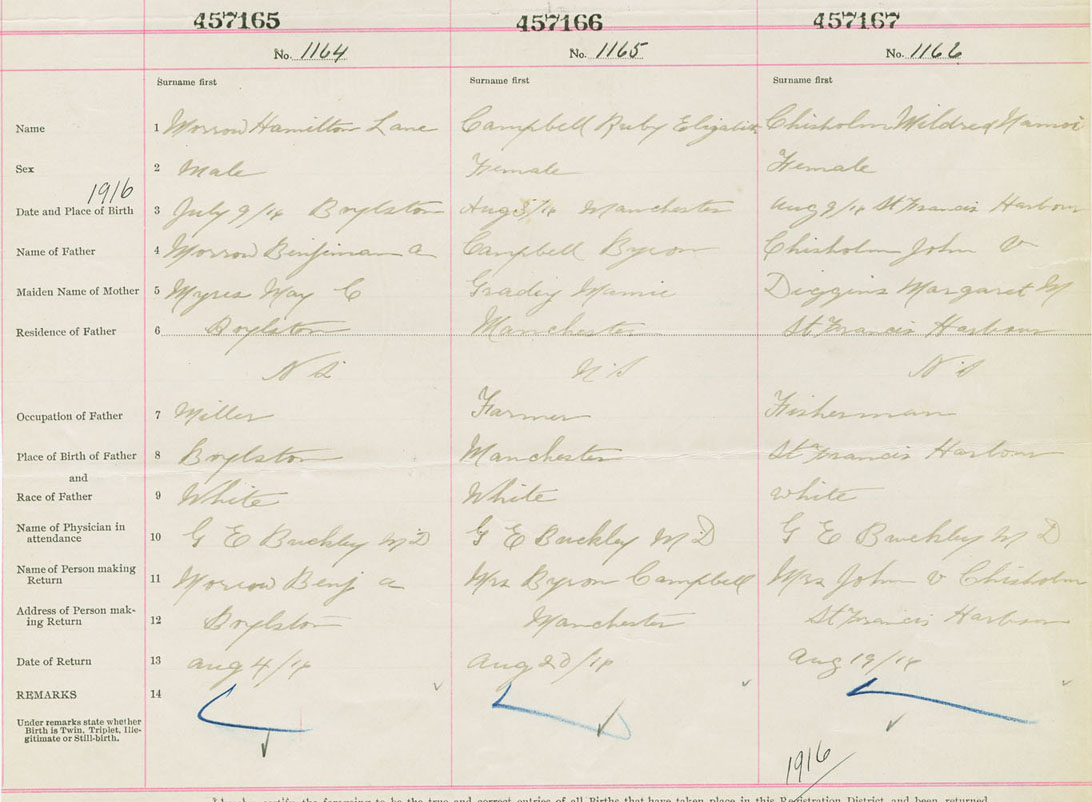 457165 457166 457167
No. 1164 No. 1165 No. 1166
Surname first Surname first Surname first
Name 1 Morrow Hamilton Lane Campbell Ruby Chisholm Mildred
Sex 2 Male Female Female
1916
Date and Place of Birth 3 July 9/16 Boylston Aug /16 Manchester Aug 9/16 St Francis Harbour
Name of Father 4 Morrow Benjiman a Campbell Byron Chisholm John V
Maiden Name of Mother 5 Myres May C Mamie Diggins Margaret M
Residence of Father 6 Boylston Manchester St Francis Harbour
N S N S N S
Occupation of Father 7 Miller Farmer Fisherman
Place of Birth of Father 8 Boylston Manchester St Francis Harbour
and
Race of Father 9 White White white
Name of Physician in
attendance 10 G E Buckley M D G E Buckley M D G E Buckley M D
Name of Person making
Return 11 Morrow Benj a Mrs Byron Campbell Mrs John V Chisholm
Address of Person mak-
ing Return 12 Boylston Manchester St Francis Harbour
Date of Return 13 aug 4/16 Aug 20/16 Aug 19/16
REMARKS 14
Under remarks state whether
Birth is Twin, Triplet, Ille-
gitimate or Still-birth.
1916
I hereby certify the foregoing to be the true and correct entries of all Births that have taken place in this Registration District and been returned